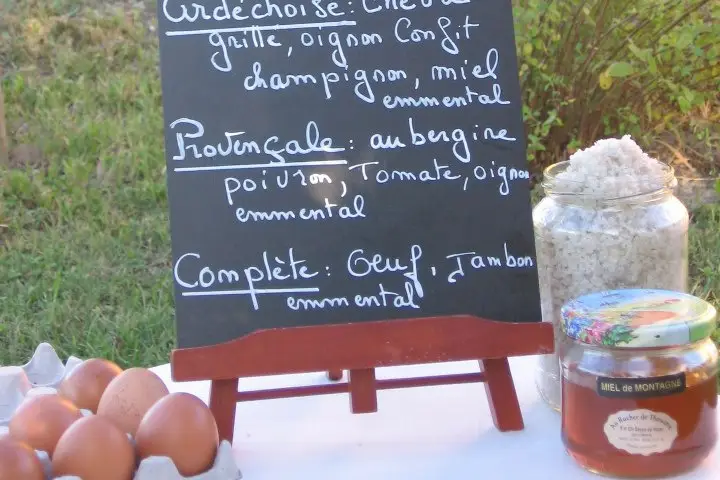 Ardéchoise : Chèvre
grillé, oignon Confit
champignon, miel
emmental
Provençale : aubergine
poivron, Tomate, oignon
emmental
Complète : Oeuf, Jambon
emmental
MIEL de MONTAGNE